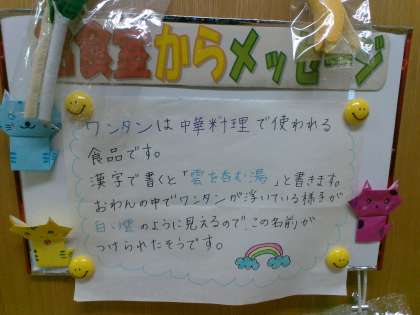 給食室からメッセージ
ワンタンは中華料理で使われる
食品です。
漢字で書くと「雲を呑む湯」と書きます。
おわんの中でワンタンが浮いている様子が
白い雲のように見えるので、この名前が
つけられたそうです。